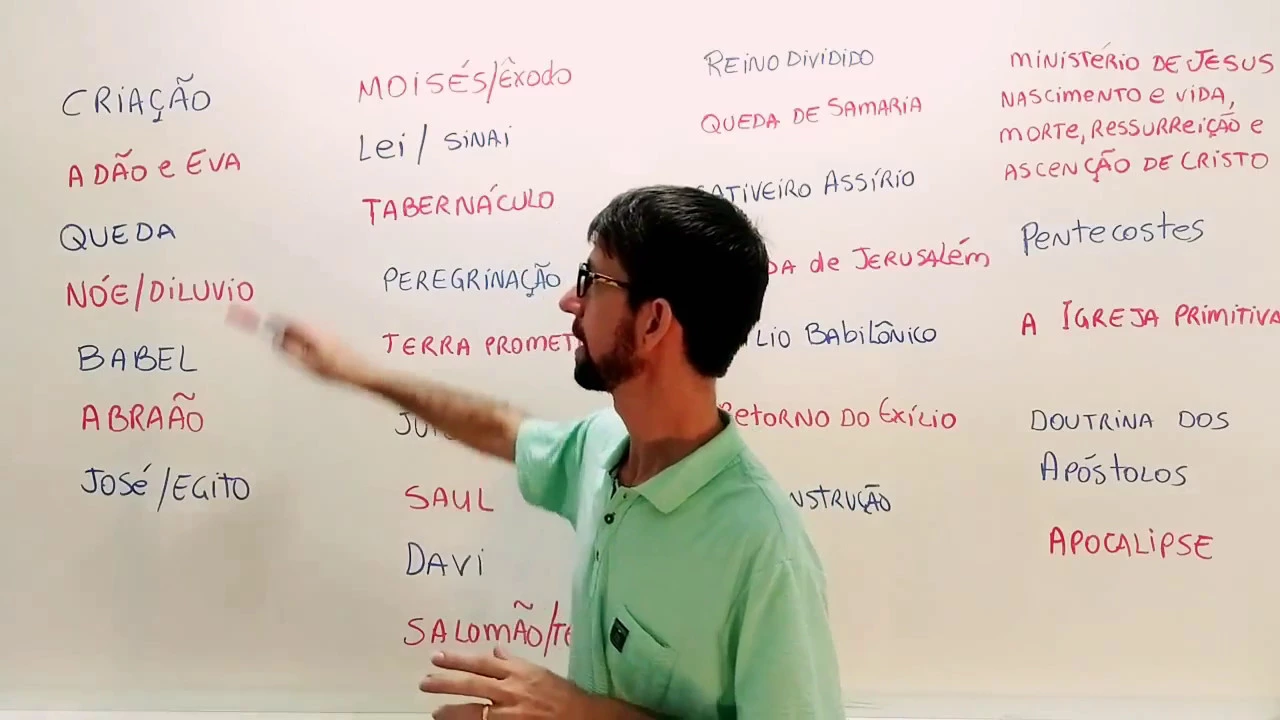 CRIAÇÃO
ADÃO e EVA
QUEDA
NÓE/DILUVIO
BABEL
ABRAÃO
JOSÉ/EGITO
MOISÉS/ÊXODO
Lei/ SINAI
TABERNÁCULO
PEREGRINAÇÃO
TERRA
SAUL
DAVI
SALOMÃO/
REINO DIVIDIDO
QUEDA DE SAMARIA
ASSÍRIO
de JERUSALÉM
BABILÔNICO
RETORNO DO EXÍLIO
MINISTÉRIO DE JESUS
NASCIMENTO e VIDA,
MORTE, RESSURREIÇÃO e
ASCENÇÃO DE CRISTO
Pentecostes
A IGREJA PRIMITIVA
DOUTRINA DOS
APÓSTOLOS
APOCALIPSE